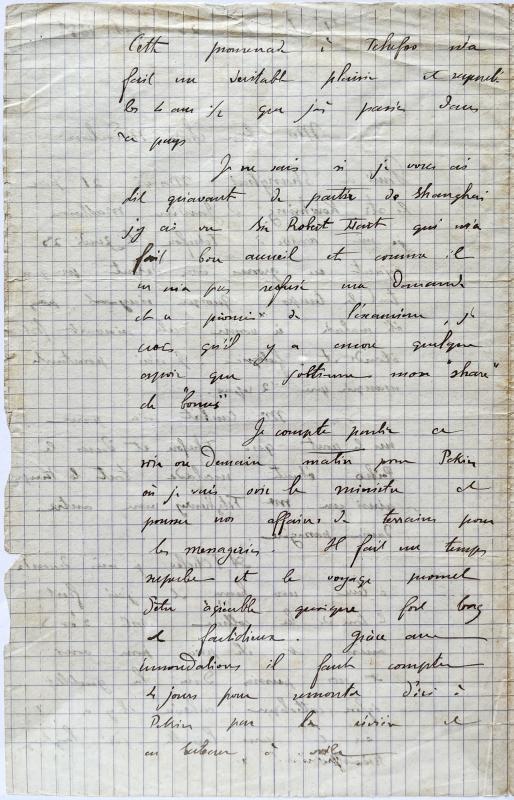 Cette promenade à Tchefoo m'a
fait un véritable plaisir et rappelé
les 4 ans 1/2 que j'ai passés dans
ce pays
Je ne sais si je vous ai
dit qu'avant de partir de Shanghai
j'y ai vu Sir Robert Hart qui m'a
fait bon accueil et comme il
ne m'a pas refusé ma demande
et a promis de l'examiner, je
crois qu'il y a encore quelque
espoir que j'obtienne mon "share"
de "bonus"
Je compte partir ce
soir ou demain matin pour Pekin
où je vais voir le ministre et
pousser nos affaires de terrains pour
les messageries. Il fait un temps
superbe et le voyage promet
d'être agréable quoique fort long
et fastidieux. Grâce aux
innondations il faut compter
4 jours pour remonter d'ici à
Pekin par la rivière et
en bateau à voile